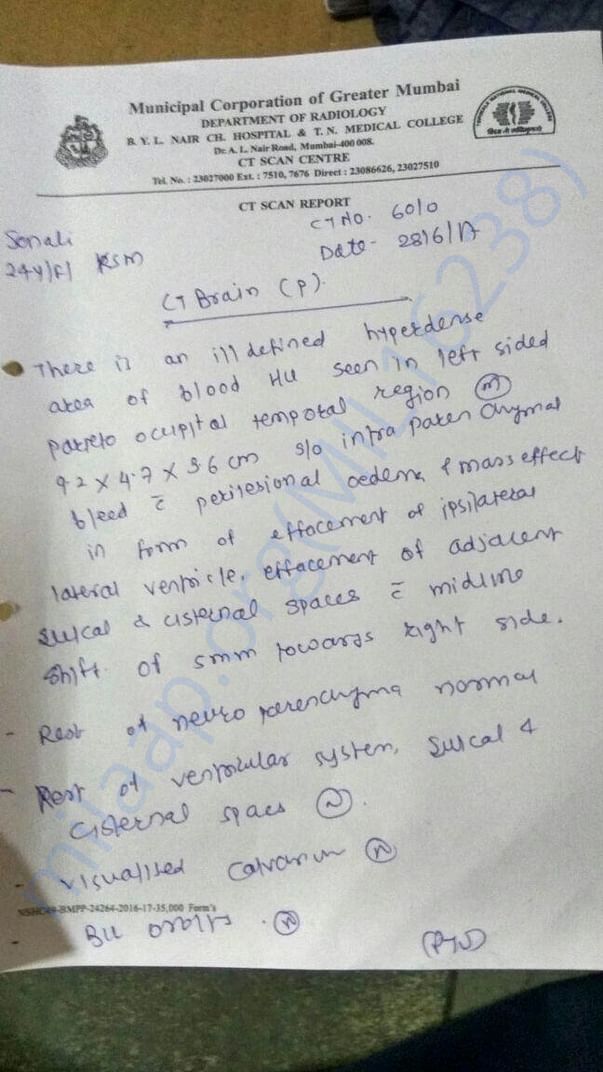 Municipal Corporation of Greater Mumbai
DEPARTMENT OF RADIOLOGY
B. Y. L. NAIR CH. HOSPITAL & T. N. MEDICAL COLLEGE
Dr. A. L. Nair Road, Mumbai-400 008.
CT SCAN CENTRE
Tel. No. : 23027000 Ext. : 7510, 7676 Direct : 23086626, 23027510
CT SCAN REPORT
CT NO. 6010
Sonali
Date - 28/6/17
24y/F/ RSM
CT Brain (P).
There is an ill defined hyperdense
area of blood HU seen in left sided
parieto occipital temporal region (m)
9.2 x 4.7 x 3.6 cm s/o intra parenchymal
bleed c̄ perilesional oedema & mass effect
in form of effacement of ipsilateral
lateral ventricle, effacement of adjacent
sulcal & cisternal spaces c̄ midline
shift of 5mm towards right side.
- Rest of neuro parenchyma normal
- Rest of ventricular system, sulcal &
cisternal spaces (N).
- visualised calvarium (N)
NSHO49-BMPP-24264-2016-17-35,000 Form's
- B/L orbits . (N)
milaap.org(MIL116238)